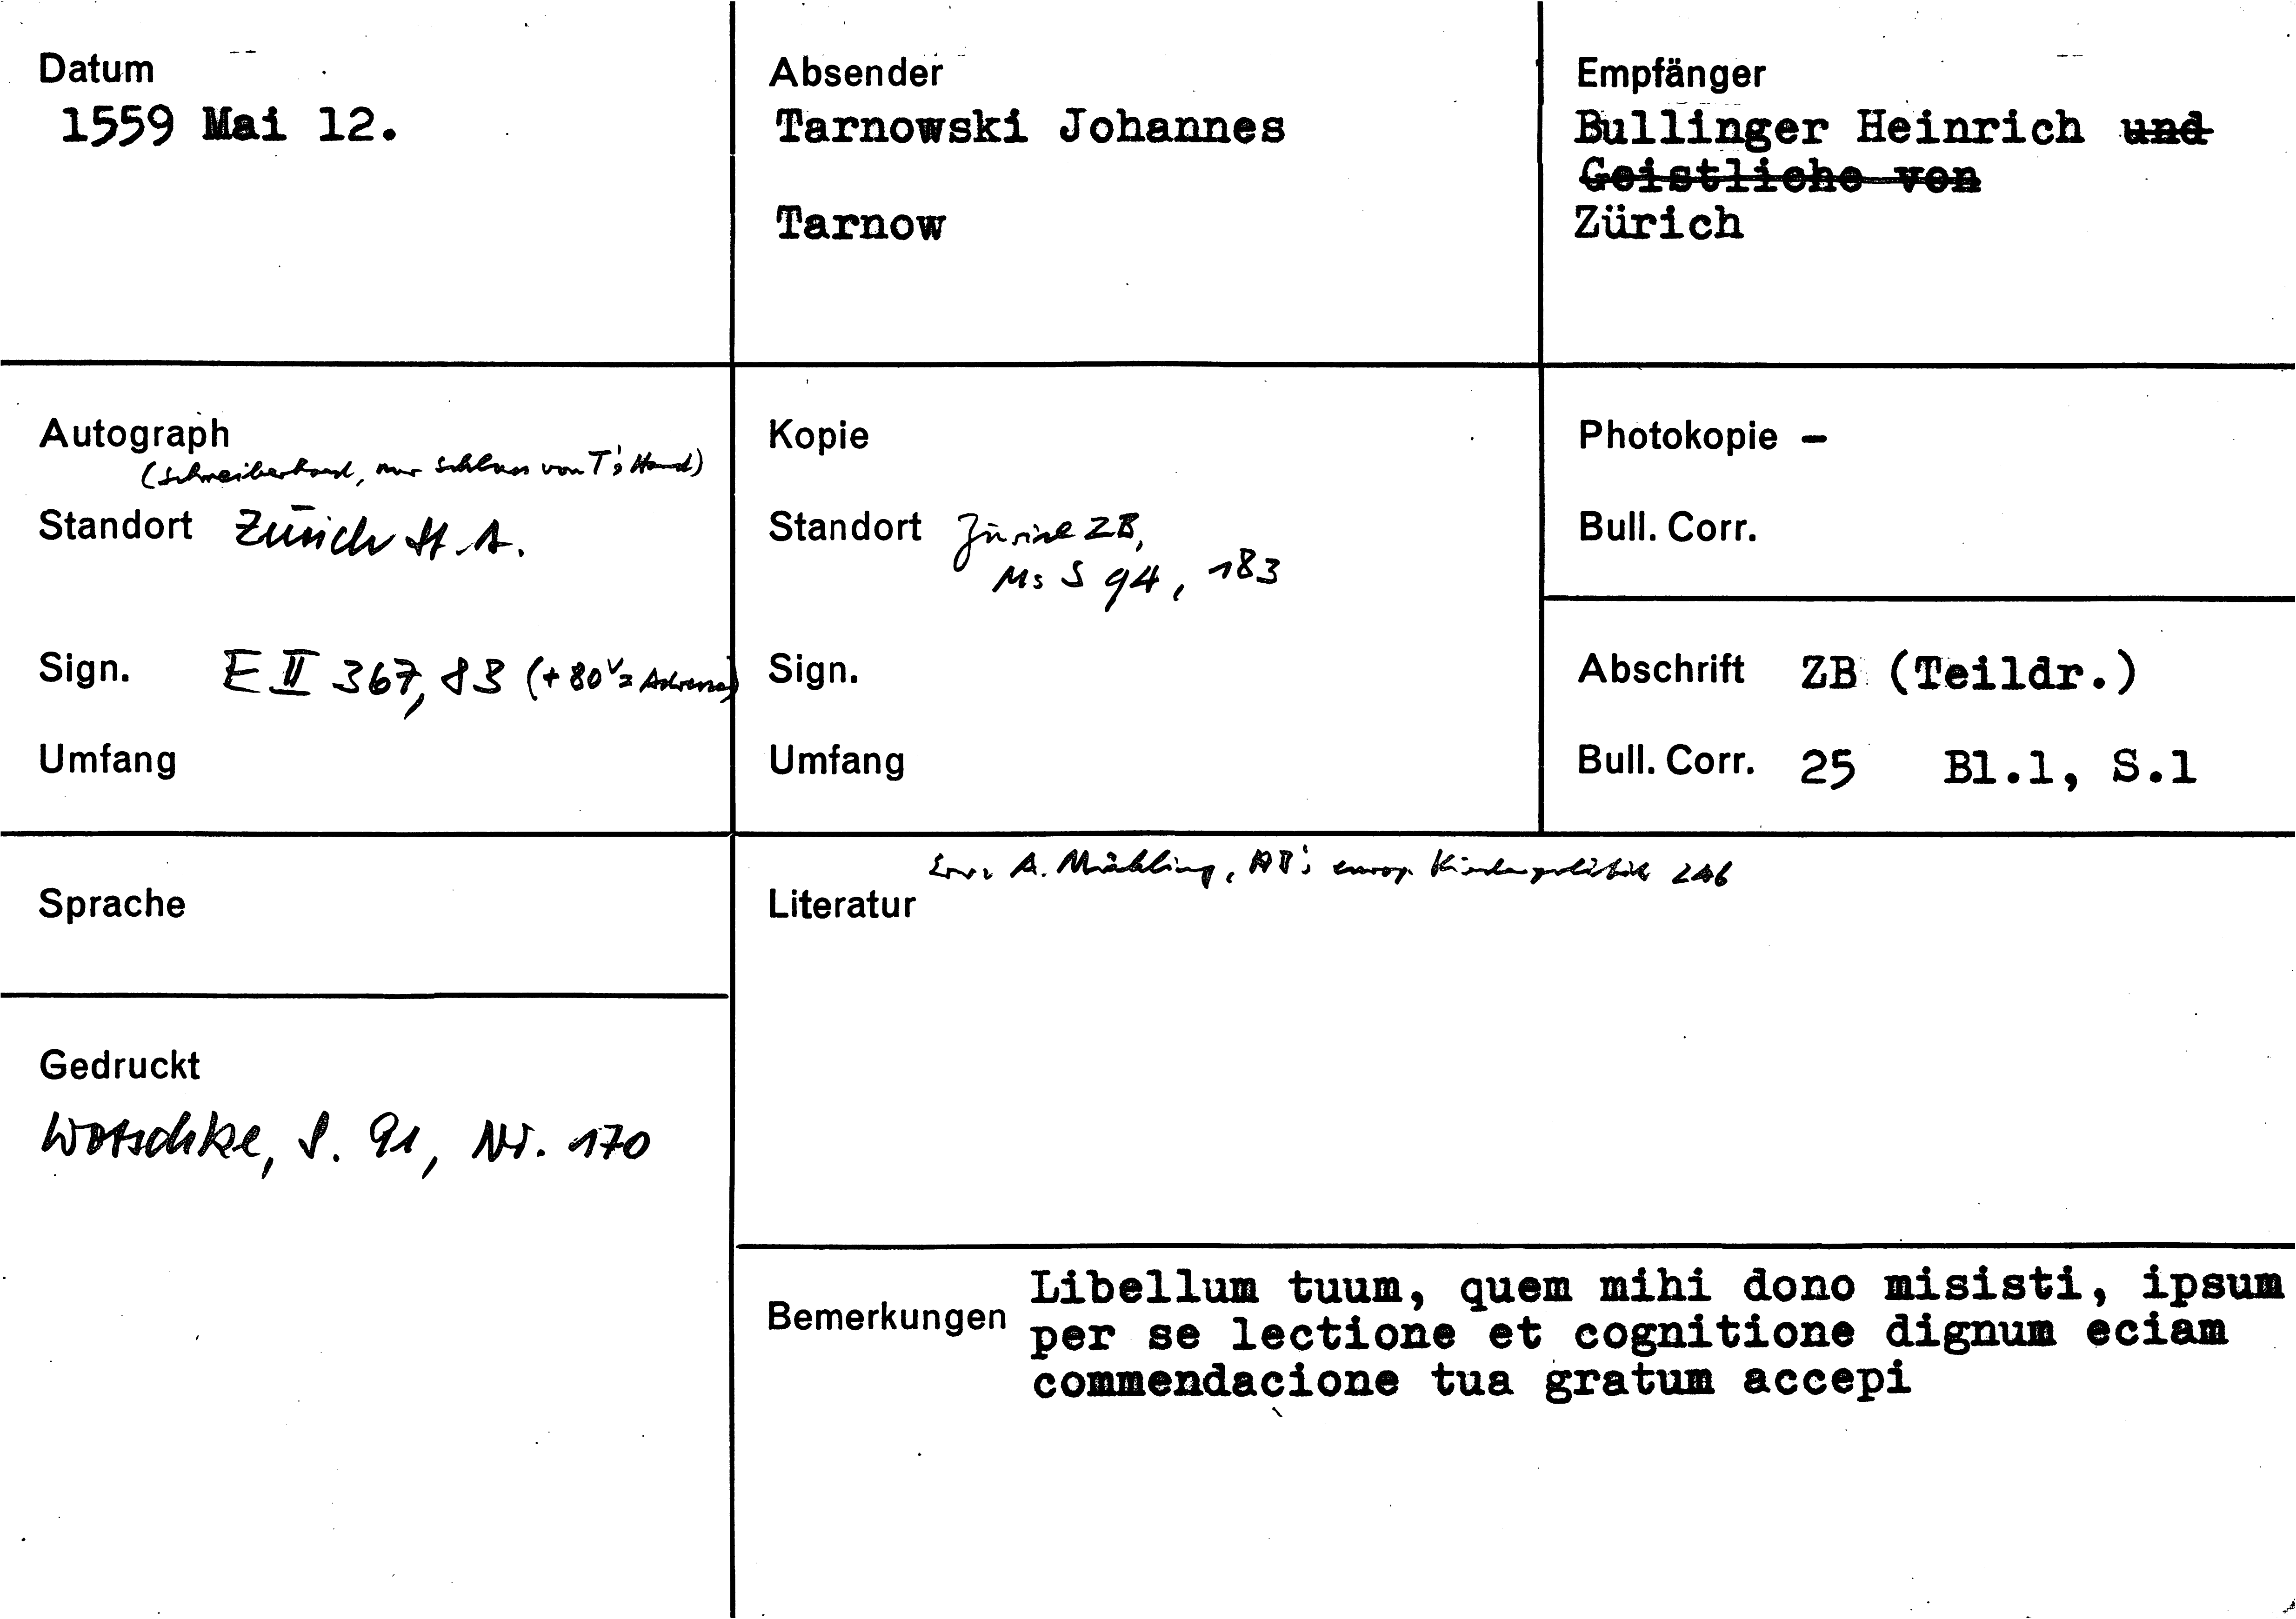 Datum
1559 Mai 12.
Absender
Tarnowski Johannes
Tarnow
Empfänger
Bullinger Heinrich und
Geistliche von
Zürich
Autograph
(Schreiberhand, nur Schluss von T's Hand)
Standort Zürich StA.
Sign. E II 367, 83 (+ 80v = Adresse)
Umfang
Kopie
Standort Zürich ZB,
Ms S 94, 183
Sign.
Umfang
Photokopie -
Bull. Corr.
Abschrift ZB (Teildr.)
Bull. Corr. 25 Bl.1, S.1
Sprache
Gedruckt
Wotschke, S. 91, Nr. 170
Erw: A. Mühling, HB's europ. Kirchenpolitik 246
Literatur
Bemerkungen
Libellum tuum, quem mihi dono misisti, ipsum
per se lectione et cognitione dignum eciam
commendacione tua gratum accepi